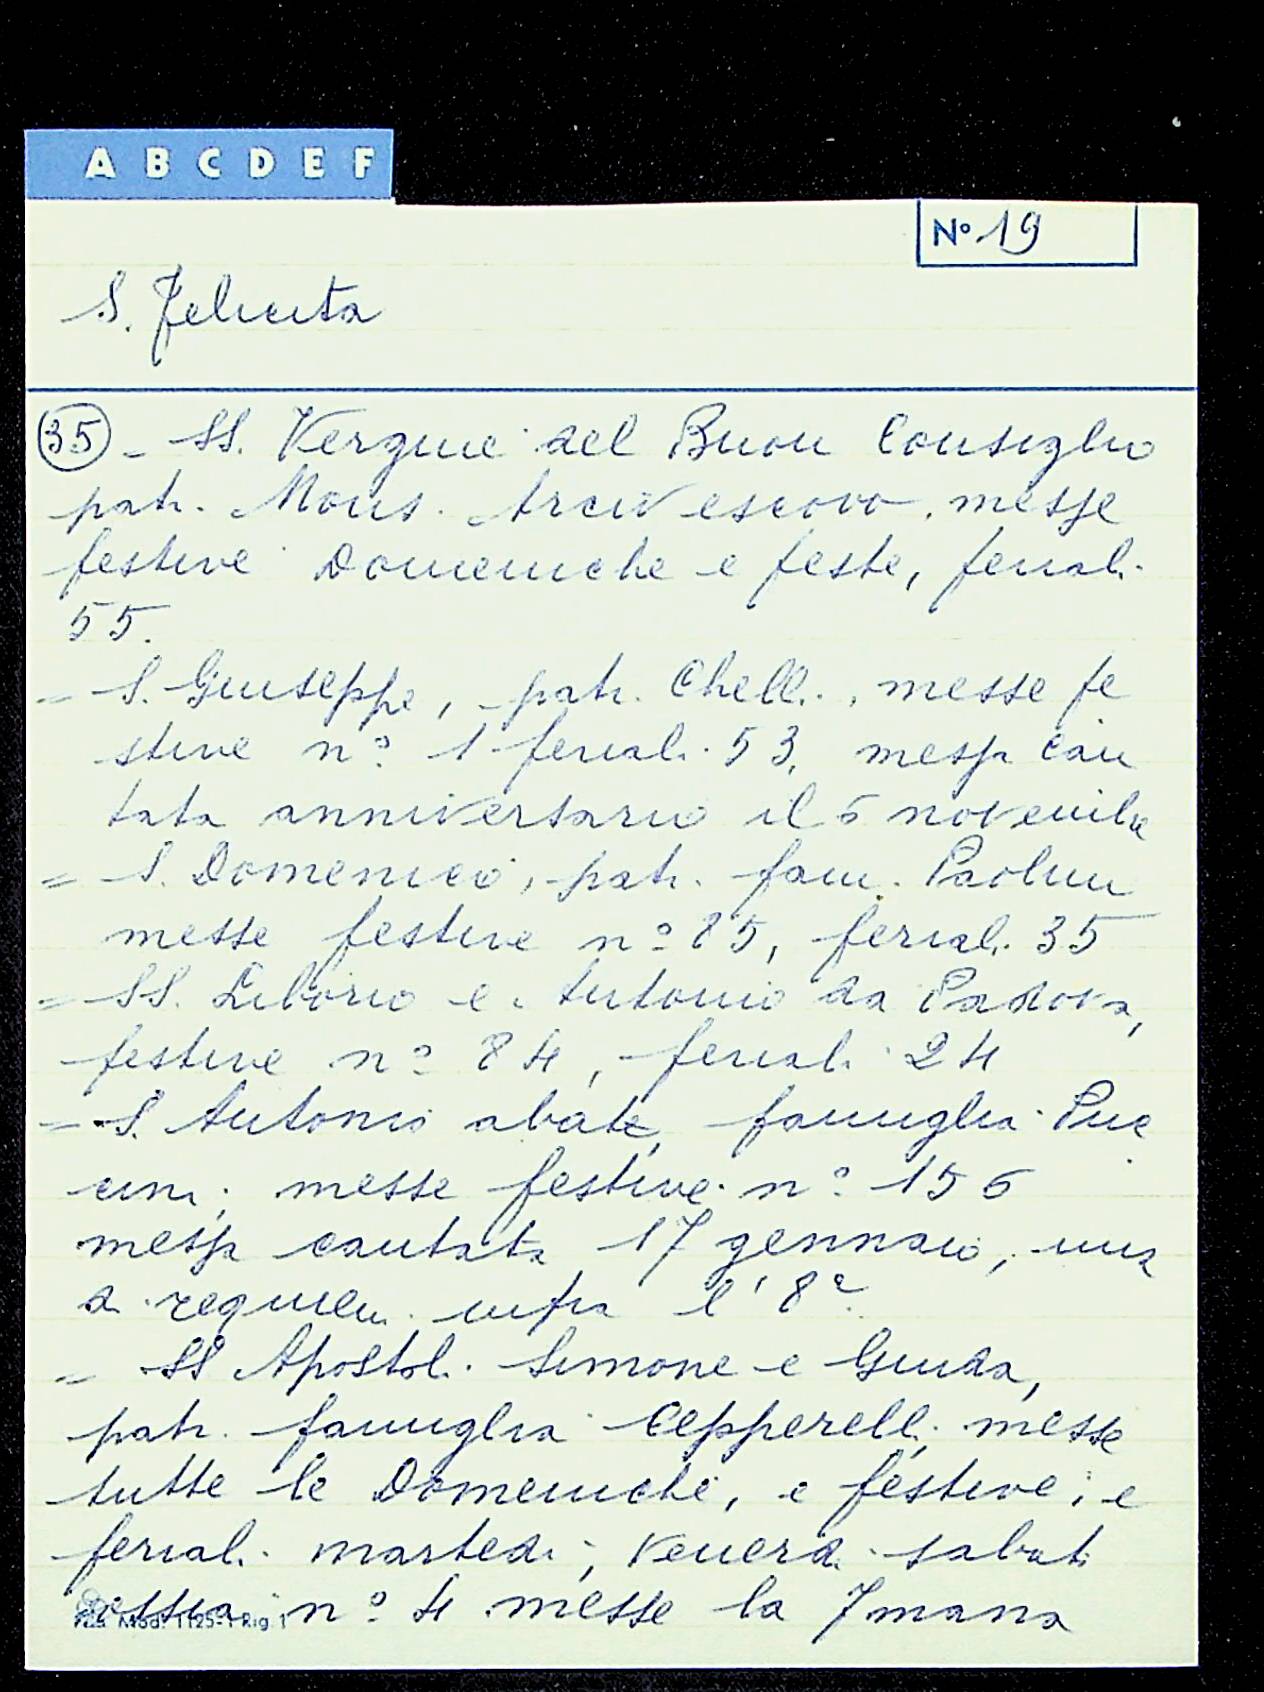 A B C D E F
Nº 19
S. Felicita
35 - SS. Vergine del Buon Consiglio
patr. Mons. Arcivescovo, messe
festive Domeniche e feste, feriali
55.
= S. Giuseppe, patr. Chelli, messe fe
stive nº 1 feriali 53, messa can
tata anniversario il 6 novembre
= S. Domenico, patr. fam. Paolini
messe festive nº 85, feriali 35
= SS. Liborio e Antonio da Padova,
festive nº 84, feriali 24
= S. Antonio abate, famiglia Puc
cini, messe festive nº 156
messa cantata 17 gennaio, una
da requiem infra l'8ª
= SS Apostoli Simone e Giuda,
patr. famiglia Cepperelli, messe
tutte le Domeniche, e festive, e
feriali martedi, venerdi sabati
ossia nº 4 messe la 7mana
Mod. 1125-1 Rig. 1